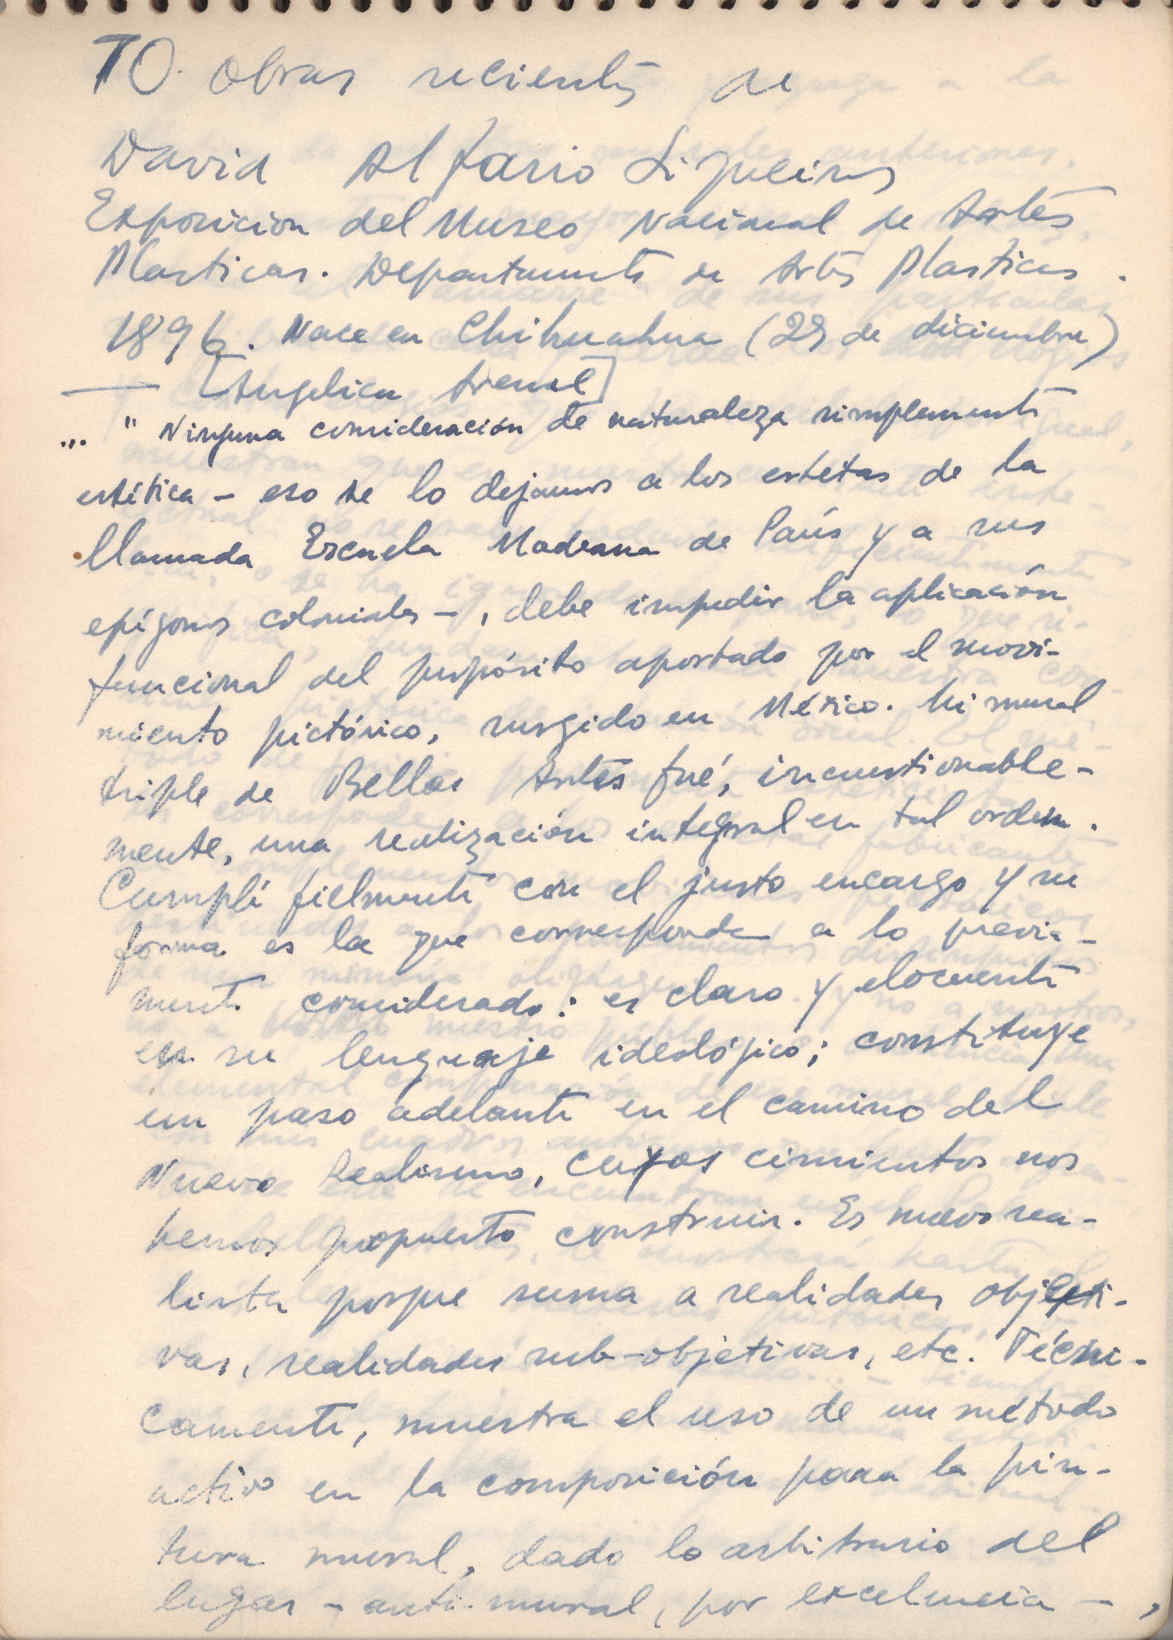 70 obras recientes de
David Alfaro Siqueiros
Exposicion del Museo Nacional de Artes
Plasticas. Departamento de Artes Plasticas.
1896. Nace en Chihuahua (29 de diciembre)
— [Angelica Arenal]
... " Ninguna consideración de naturaleza simplemente
estética - eso se lo dejamos a los estetas de la
llamada Escuela Moderna de París y a sus
epígonos coloniales -, debe impedir la aplicación
funcional del propósito aportado por el movi-
miento pictórico, surgido en México. Mi mural
triple de Bellas Artes fué, incuestionable-
mente, una realización integral en tal orden.
Cumplí fielmente con el justo encargo y su
forma es la que corresponde a lo previa-
mente considerado: es claro y elocuente
en su lenguaje ideológico; constituye
un paso adelante en el camino del
Nuevo Realismo, cuyos cimientos nos
hemos propuesto construir. Es nuevo rea-
lista porque suma a realidades objeti-
vas, realidades sub-objetivas, etc. Técni-
camente, muestra el uso de un método
activo en la composición para la pin-
tura mural, dado lo arbitrario del
lugar - anti-mural, por excelencia -,